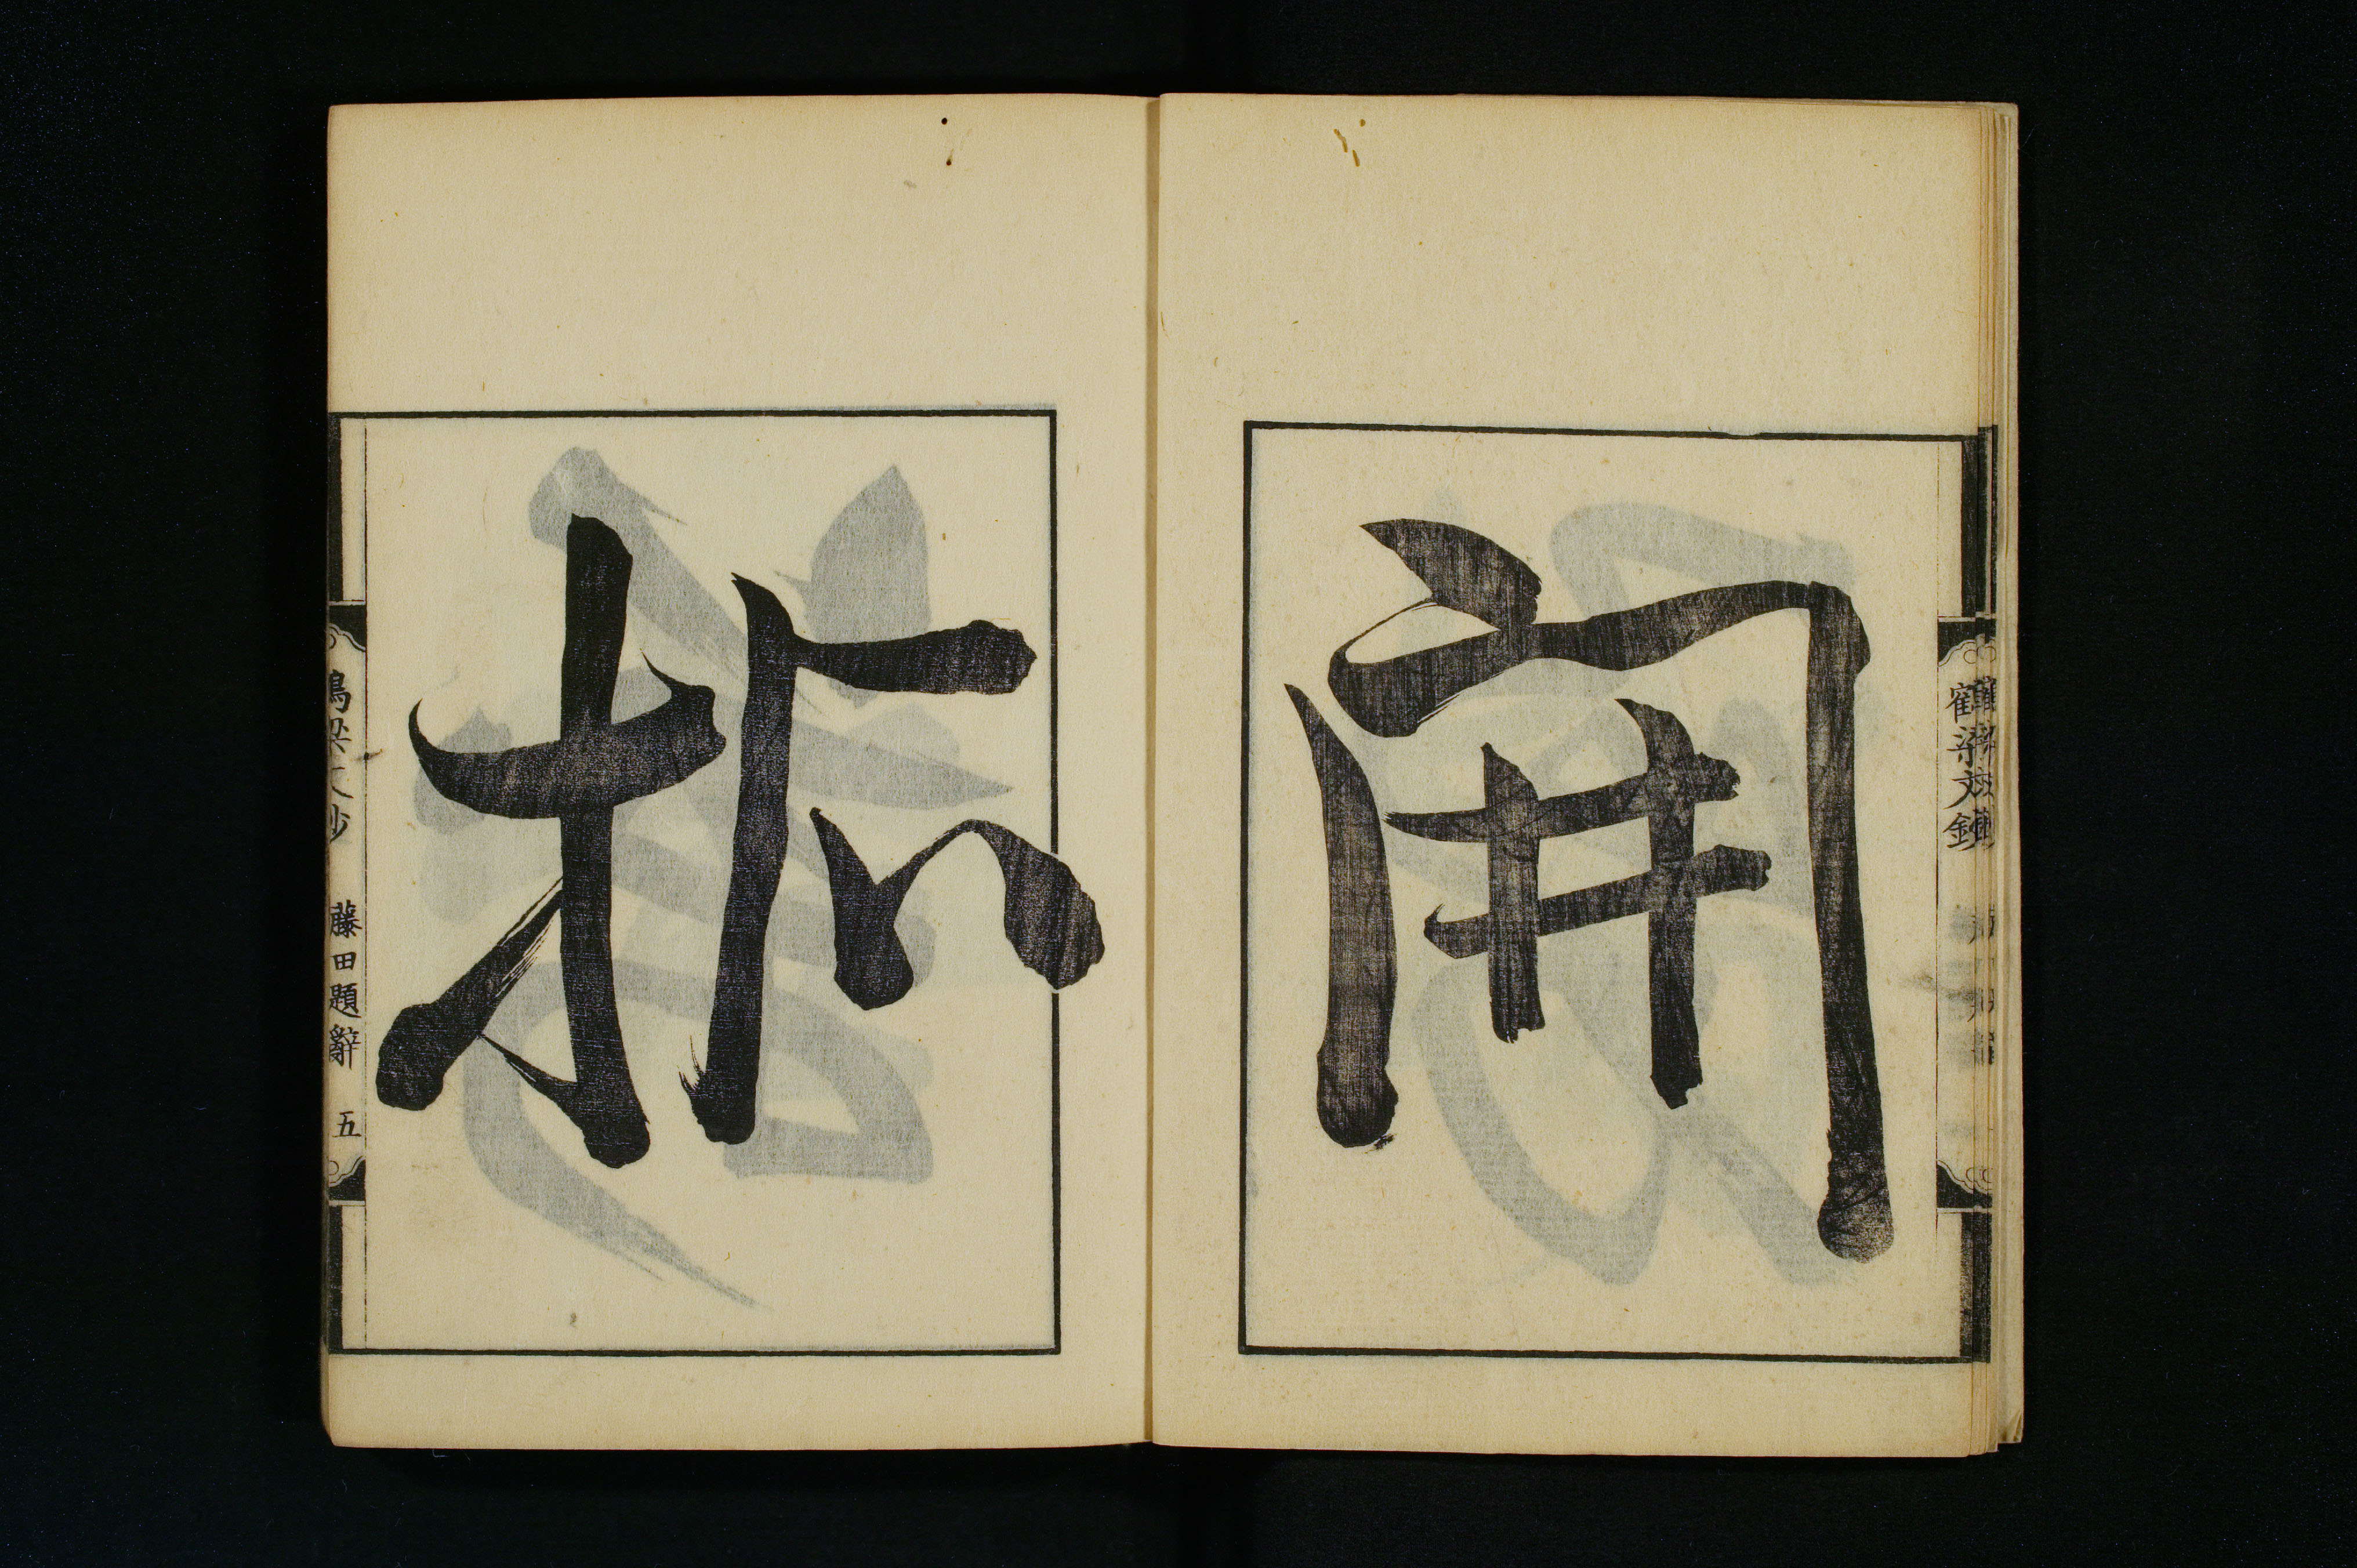 開
鶴梁文鈔
於
鶴梁文鈔 藤田題辭 五